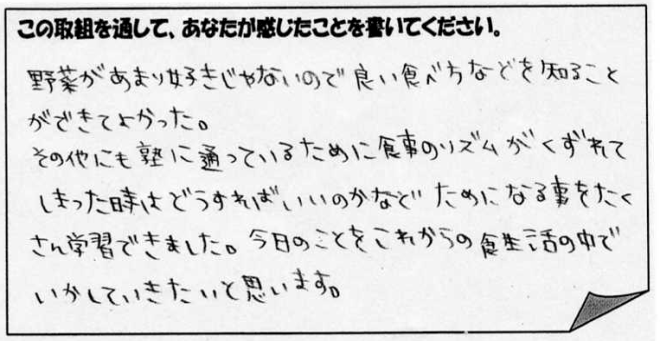 この取組を通して、あなたが感じたことを書いてください。
野菜があまり好きじゃないので良い食べ方などを知ること
ができてよかった。
その他にも塾に通っているために食事のリズムがくずれて
しまった時はどうすればいいのかなどためになる事をたく
さん学習できました。今日のことをこれからの食生活の中で
いかしていきたいと思います。